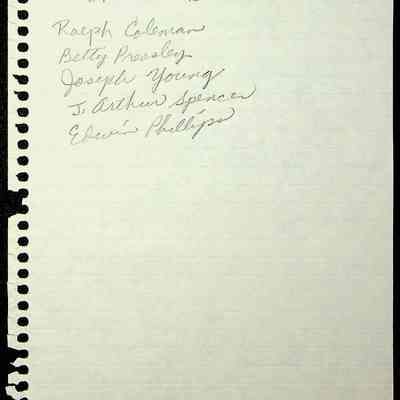 Ralph Coleman
Betty Pressley
Joseph Young
J. Arthur Spencer
Edwin Phillips